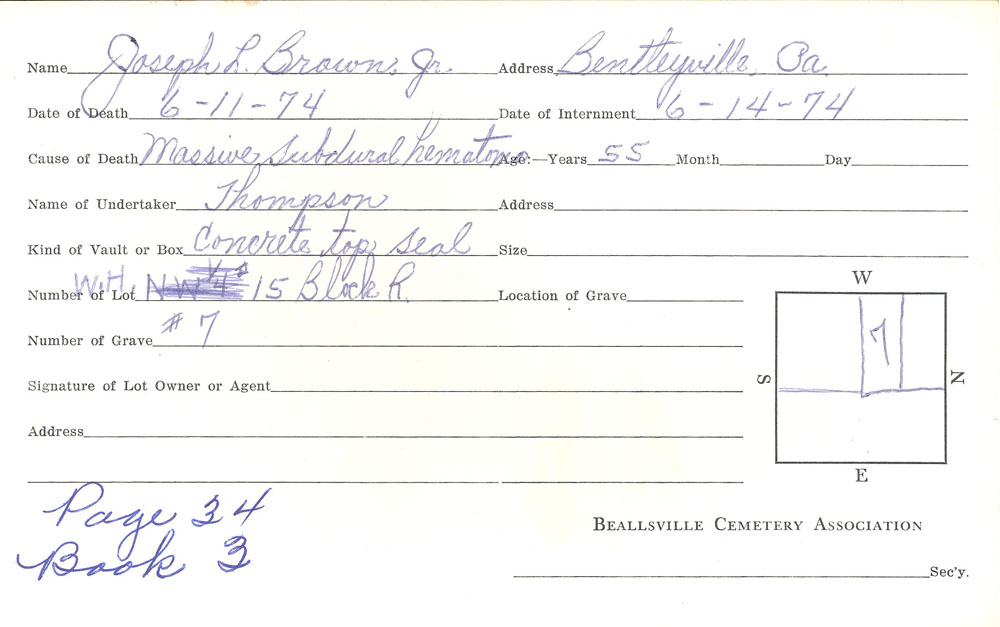 Name Joseph L. Brown, Jr. Address Bentleyville, Pa.
Date of Death 6-11-74 Date of Internment 6-14-74
Cause of Death Massive Subdural hematoma Age:—Years 55 Month Day
Name of Undertaker Thompson Address
Kind of Vault or Box Concrete top seal Size
Number of Lot W.H. 15 Block R. Location of Grave
Number of Grave #7
Signature of Lot Owner or Agent
Address
W
S
7
N
E
Page 34
Book 3
BEALLSVILLE CEMETERY ASSOCIATION
Sec'y.